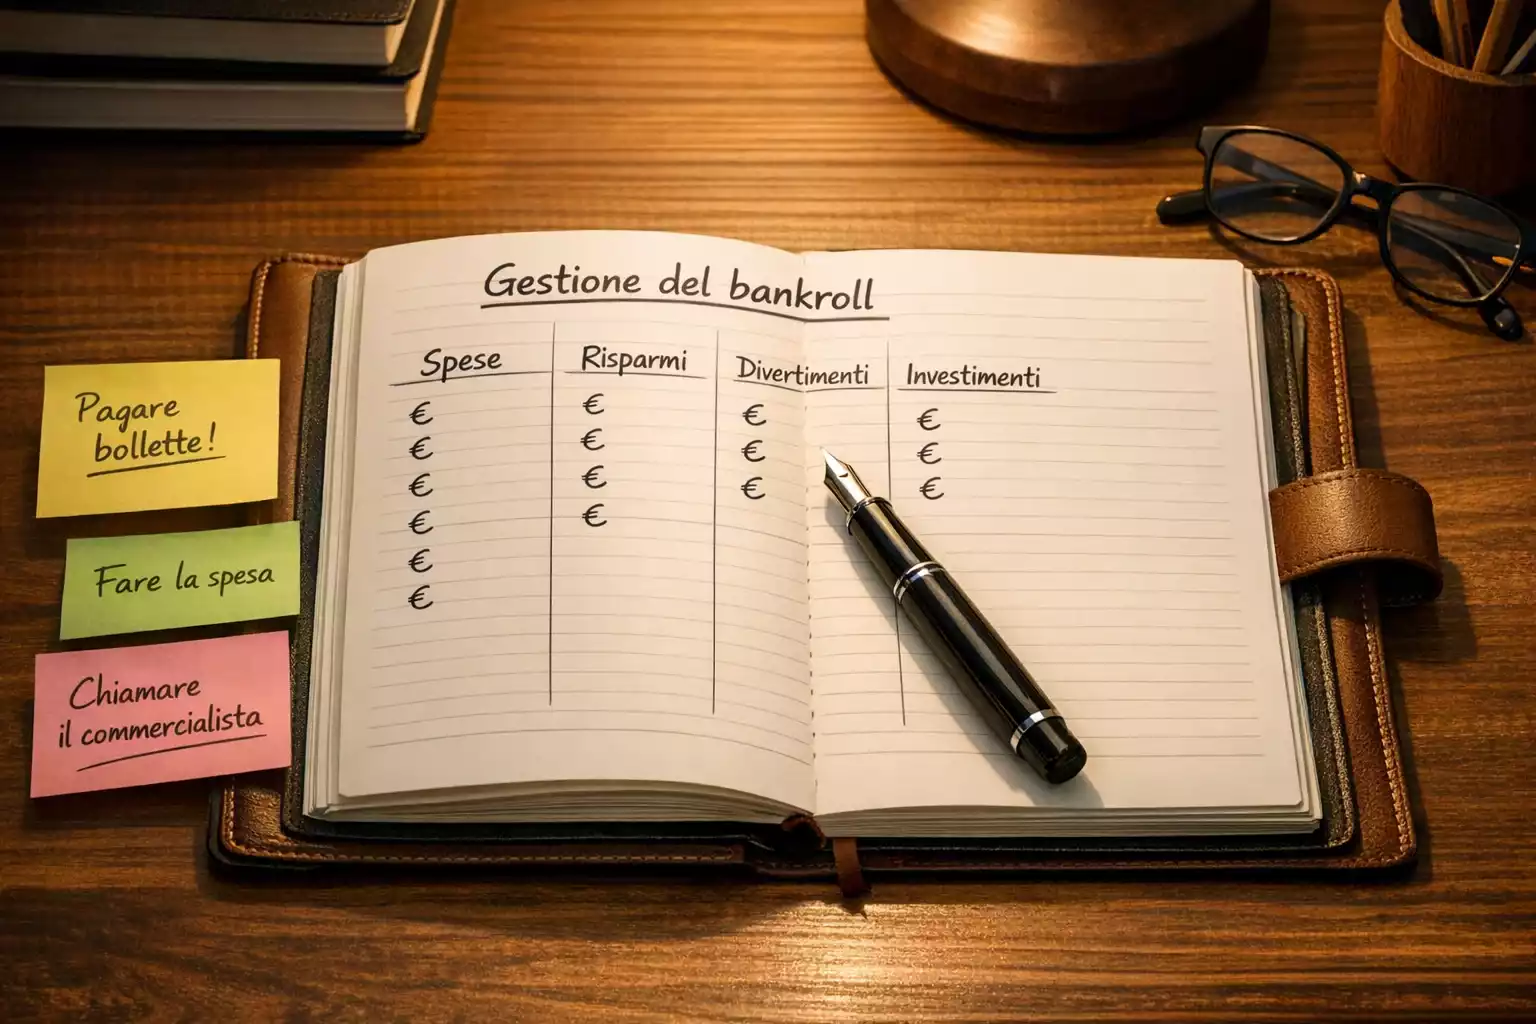 Gestione del bankroll
Spese Risparmi Divertimenti Investimenti
€ € € €
€ € € €
€ € € €
€ €
€
€
Pagare
bollette!
Fare la spesa
Chiamare
il commercialista